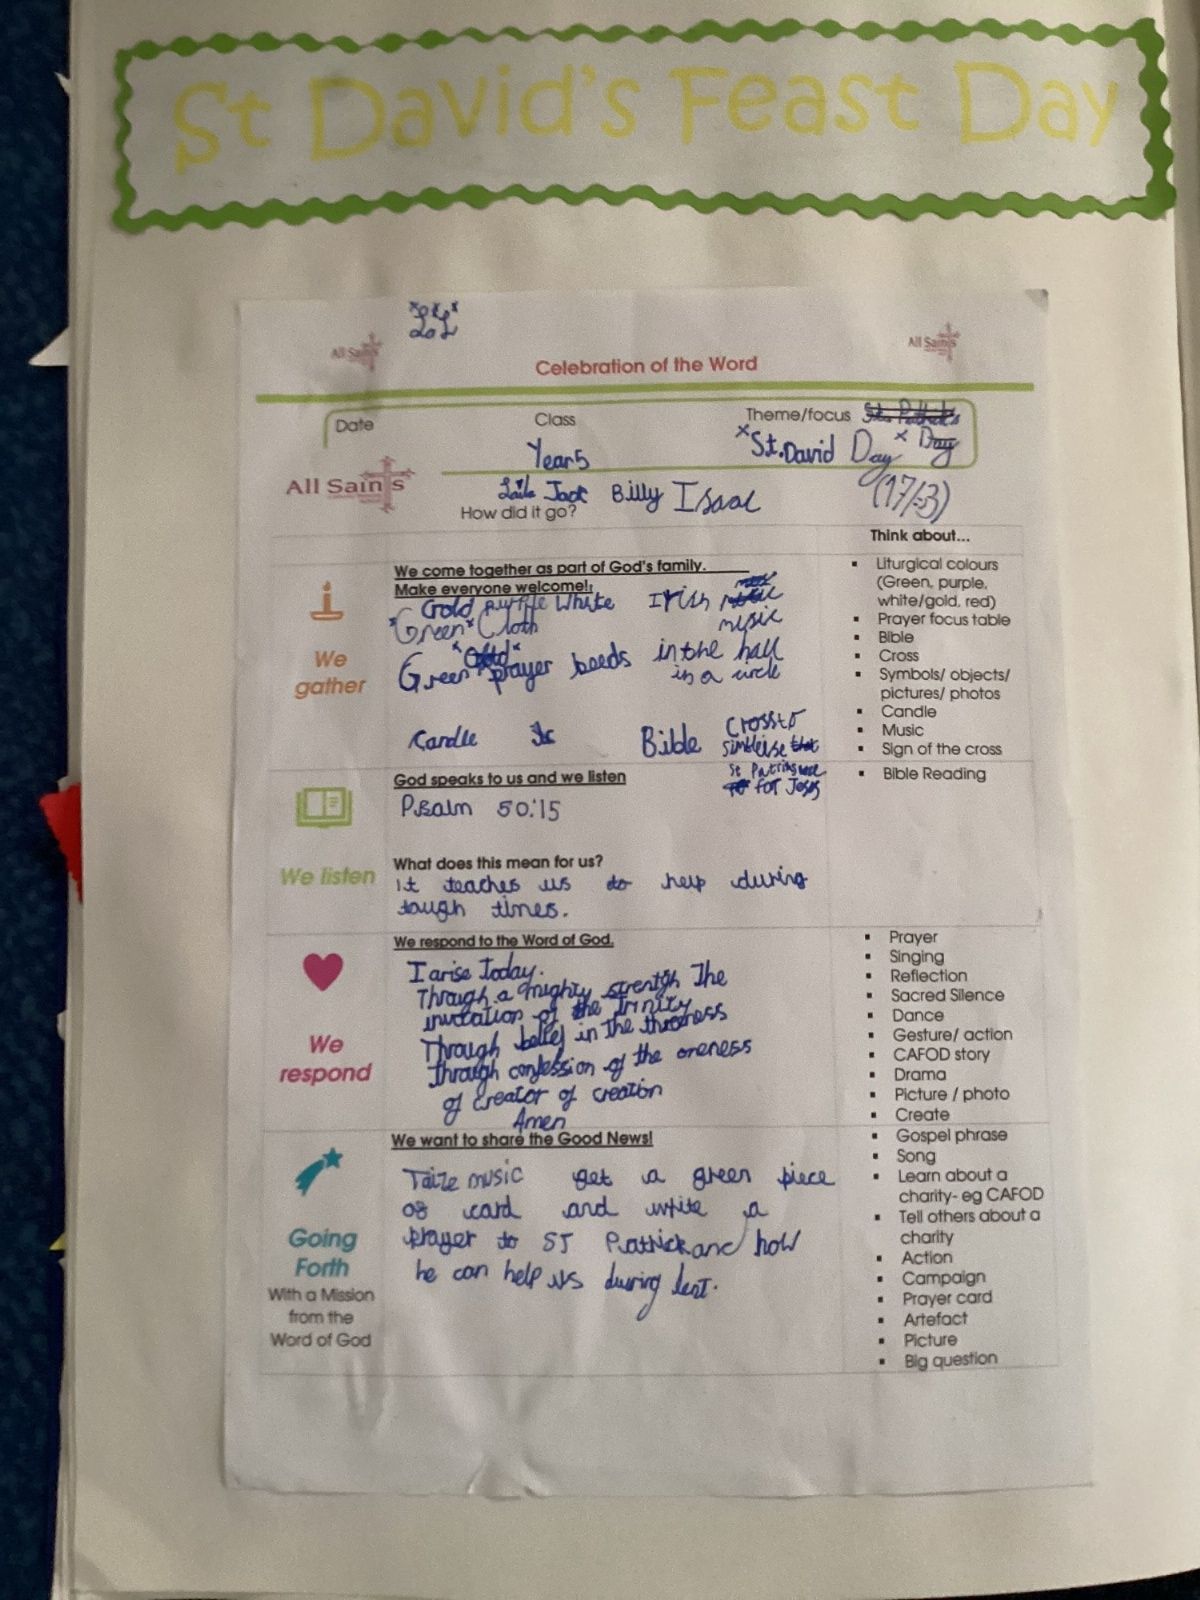 St David's Feast Day
All Saints
All Saints
Celebration of the Word
Date
Class
Theme/focus St. Patrick's
Year 5
*St. David Day × Day
All Saints
Laila Jack Billy Isaac
How did it go?
Think about...
We gather
We come together as part of God's family.
Make everyone welcome!
Gold purple White
*Green* Cloth
Irish
music
Green prayer beeds
in the hall
in a circle
Candle
Bible
Cross to
simbleise
St Patricks
for Jesus
Liturgical colours
(Green, purple,
white/gold, red)
Prayer focus table
Bible
Cross
Symbols/ objects/
pictures/ photos
Candle
Music
Sign of the cross
We listen
God speaks to us and we listen
Psalm 50:15
What does this mean for us?
It teaches us to help during
tough times.
Bible Reading
We respond
We respond to the Word of God.
I arise Today.
Through a mighty strength The
invocation of the Trinity
Through belief in The threeness
through confession of the oneness
of creator of creation
Amen
Prayer
Singing
Reflection
Sacred Silence
Dance
Gesture/ action
CAFOD story
Drama
Picture / photo
Create
Going
Forth
With a Mission
from the
Word of God
We want to share the Good News!
Taize music get a green piece
of card and write a
prayer to ST Patrick and how
he can help us during lent.
Gospel phrase
Song
Learn about a
charity- eg CAFOD
Tell others about a
charity
Action
Campaign
Prayer card
Artefact
Picture
Big question